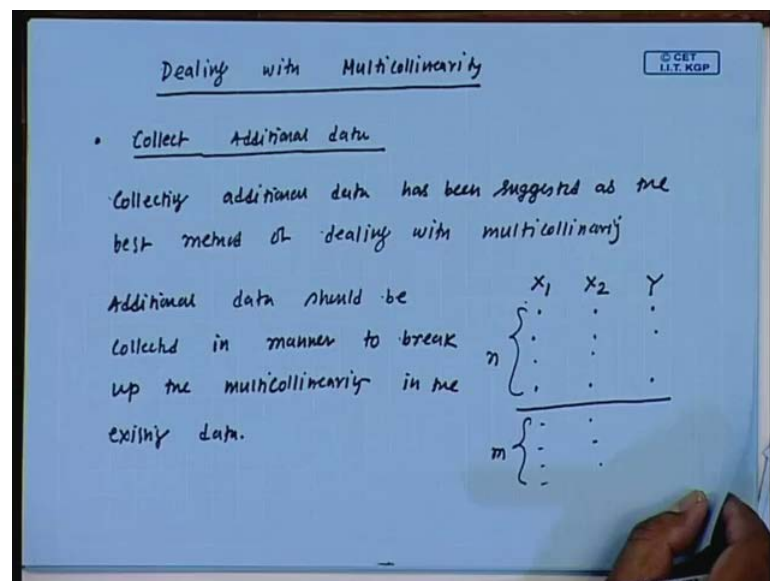 Dealing with Multicollinearity
© CET
I.I.T. KGP
• Collect Additional data
Collecting additional data has been suggested as the
best method of dealing with multicollinarity
Additional data should be
collected in manner to break
up the multicollinearity in the
existing data.
X1 X2 Y
n
m